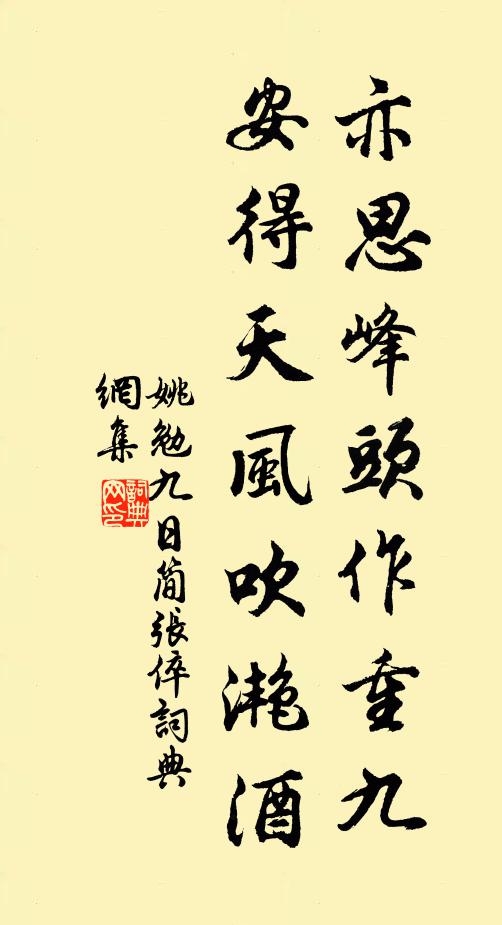 亦思峰頭作重九
安得天風吹灔酒
姚勉九日简張倅詞典
網集
詞典
网印